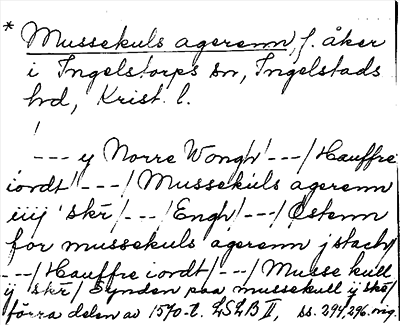 * Mussekuls agerenn, f. åker
i Ingelstorps sn, Ingelstads
hd, Krist. l.
--- y Norre Wongh ---/Hauffre
iordt/---/Mussekuls agerenn
iiij skr/---/Engh/---/Østenn
for mussekuls agerenn j stach/
---/Hauffre iordt/---/Musse kull
ij skr/ Synden paa mussekull ij skr/
förra delen av 1570-t. LSLB II, ss. 294, 296. orig.